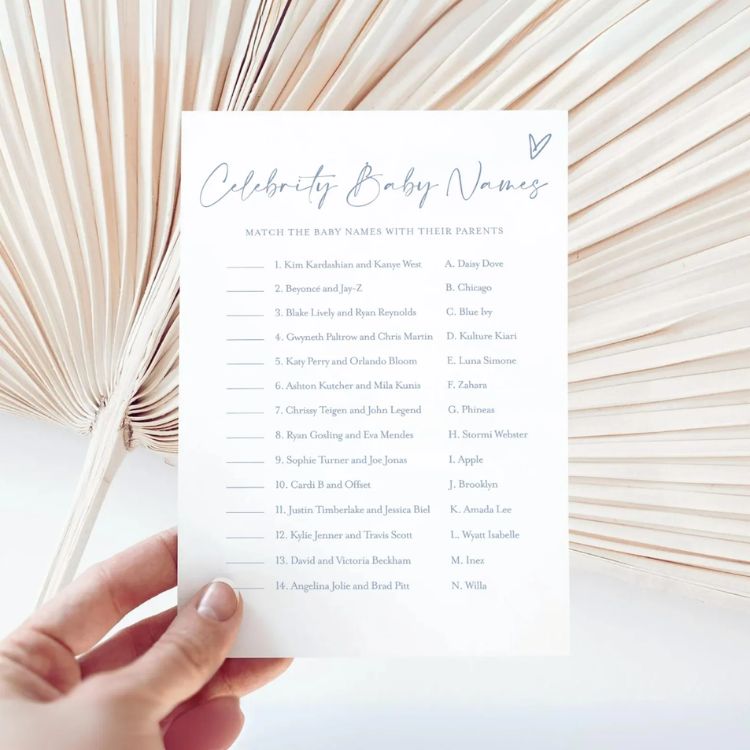 Celebrity Baby Names
MATCH THE BABY NAMES WITH THEIR PARENTS
1. Kim Kardashian and Kanye West A. Daisy Dove
2. Beyoncé and Jay-Z B. Chicago
3. Blake Lively and Ryan Reynolds C. Blue Ivy
4. Gwyneth Paltrow and Chris Martin D. Kulture Kiari
5. Katy Perry and Orlando Bloom E. Luna Simone
6. Ashton Kutcher and Mila Kunis F. Zahara
7. Chrissy Teigen and John Legend G. Phineas
8. Ryan Gosling and Eva Mendes H. Stormi Webster
9. Sophie Turner and Joe Jonas I. Apple
10. Cardi B and Offset J. Brooklyn
11. Justin Timberlake and Jessica Biel K. Amada Lee
12. Kylie Jenner and Travis Scott L. Wyatt Isabelle
13. David and Victoria Beckham M. Inez
14. Angelina Jolie and Brad Pitt N. Willa